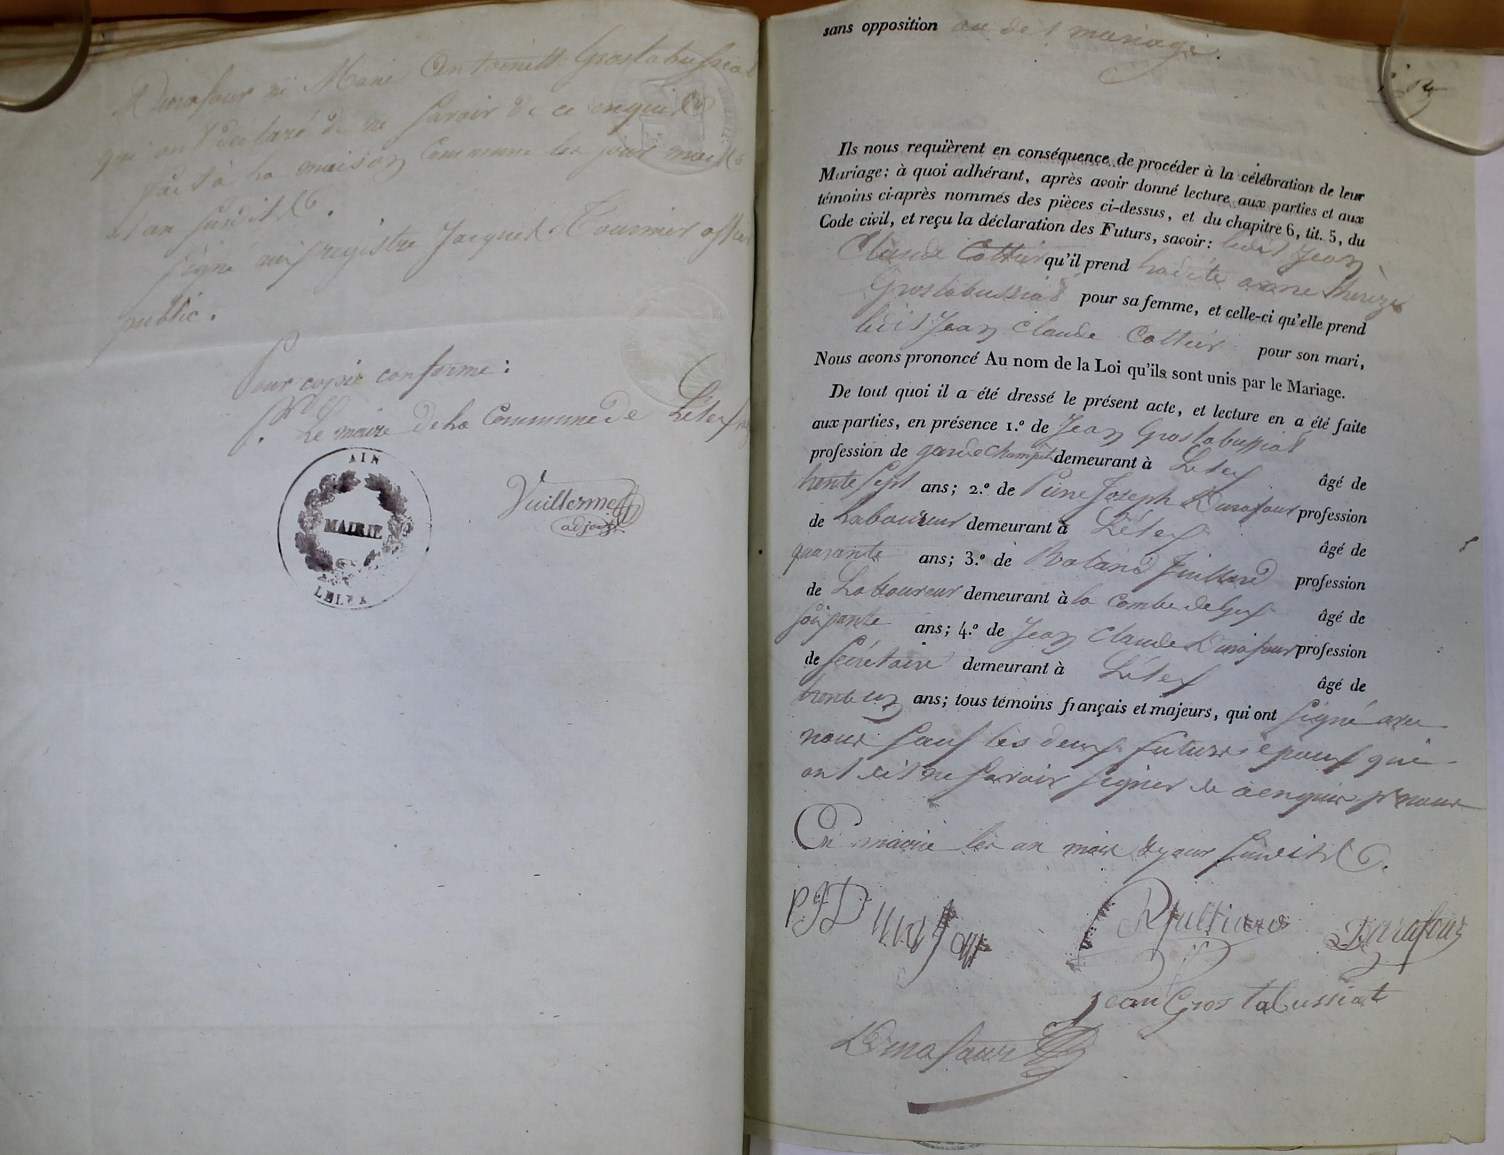 Durafour ni Marie Antoinette Grostabussiat
qui ont déclaré de ne savoir de ce enquis
fait à la maison commune les jour mois
et an susdit
signé au registre Jacquet Tournier officier
public.
Pour copie conforme :
Le maire de la Commune de Lélex
AIN
MAIRIE
LELEX
Vuillermet
adjoint
sans opposition au dt mariage.
Ils nous requièrent en conséquence de procéder à la célébration de leur
Mariage; à quoi adhérant, après avoir donné lecture aux parties et aux
témoins ci-après nommés des pièces ci-dessus, et du chapitre 6, tit. 5, du
Code civil, et reçu la déclaration des Futurs, savoir: ledit Jean
Claude Cottier qu'il prend ladite anne thereze
Grostabussiat pour sa femme, et celle-ci qu'elle prend
ledit Jean Claude Cottier pour son mari,
Nous avons prononcé Au nom de la Loi qu'ils sont unis par le Mariage.
De tout quoi il a été dressé le présent acte, et lecture en a été faite
aux parties, en présence 1.º de Jean Grostabussiat
profession de garde Champêtre demeurant à Lélex âgé de
trente sept ans; 2.º de Pierre Joseph Durafour profession
de Laboureur demeurant à Lélex âgé de
quarante ans; 3.º de Roland Juilland profession
de Laboureur demeurant à la combe de Gex âgé de
soixante ans; 4.º de Jean Claude Durafour profession
de secrétaire demeurant à Lélex âgé de
trente un ans; tous témoins français et majeurs, qui ont signé avec
nous sauf les deux futurs epoux qui
ont dit ne savoir signer de ce enquis pr nous
En mairie les an mois & jour susdits
PJ Durafour
Durafour
Jean Gros tabussiat
Durafour